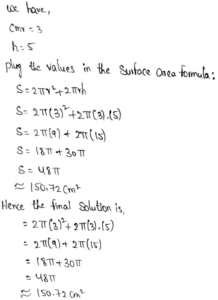 we have,
Cmr = 3
h = 5
plug the values in the Surface area formula:
S = 2πr² + 2πrh
S = 2π(3)² + 2π(3).(5)
S = 2π(9) + 2π(15)
S = 18π + 30π
S = 48π
≈ 150.72 Cm²
Hence the final Solution is,
= 2π(3)² + 2π(3).(5)
= 2π(9) + 2π(15)
= 18π + 30π
= 48π
≈ 150.72 Cm²